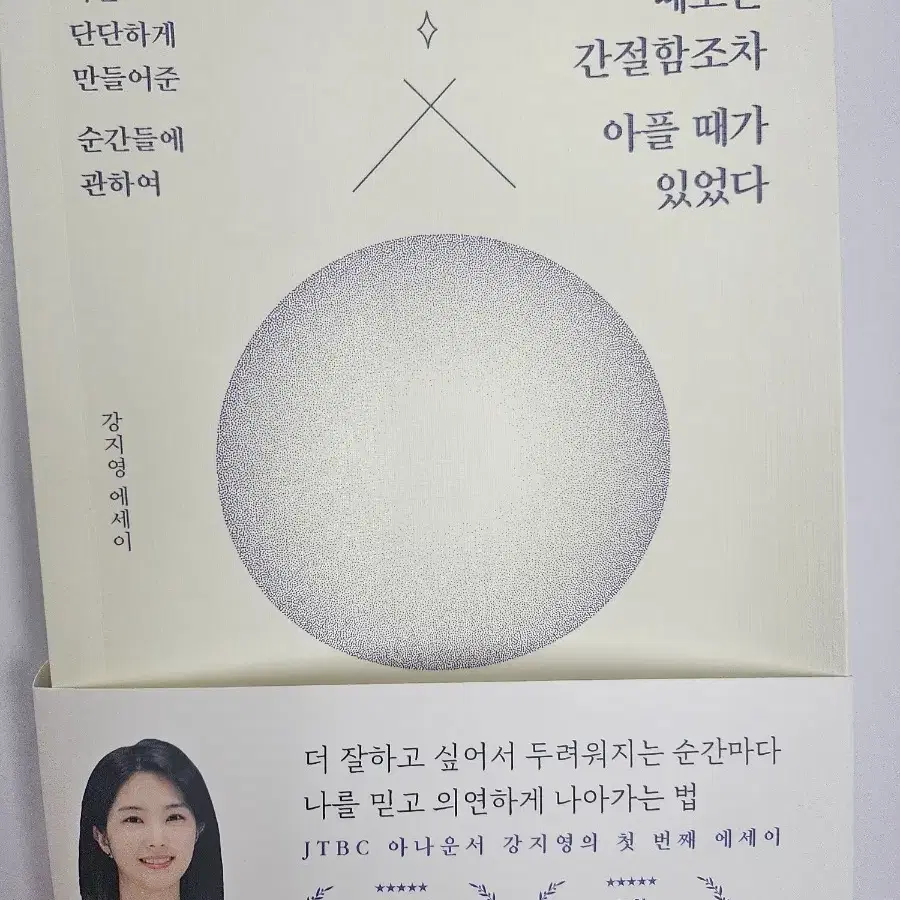 단단하게
만들어준
순간들에
관하여
간절함조차
아플 때가
있었다
강지영 에세이
더 잘하고 싶어서 두려워지는 순간마다
나를 믿고 의연하게 나아가는 법
JTBC 아나운서 강지영의 첫 번째 에세이
★★★★★ ★★★★★